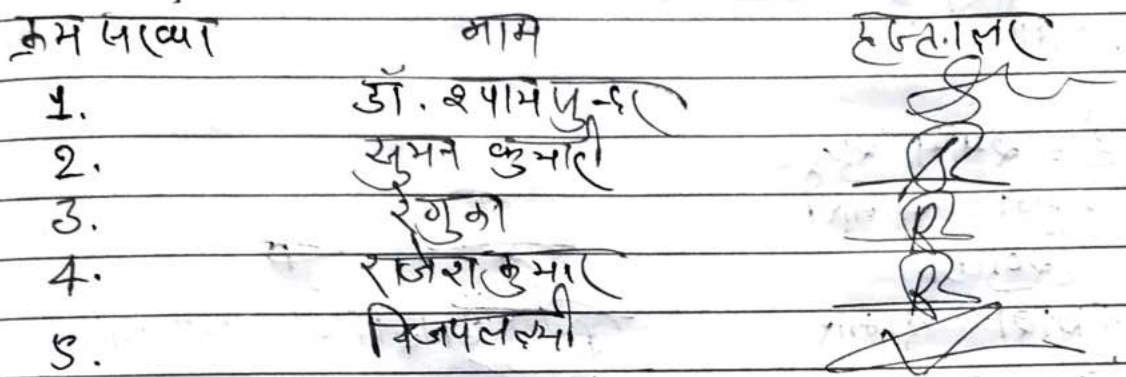 क्रम संख्या नाम हस्ताक्षर
1. डॉ. श्याम सुन्दर
2. सुमन कुमारी
3. रेणुका
4. राजेश कुमार
5. विजयलक्ष्मी